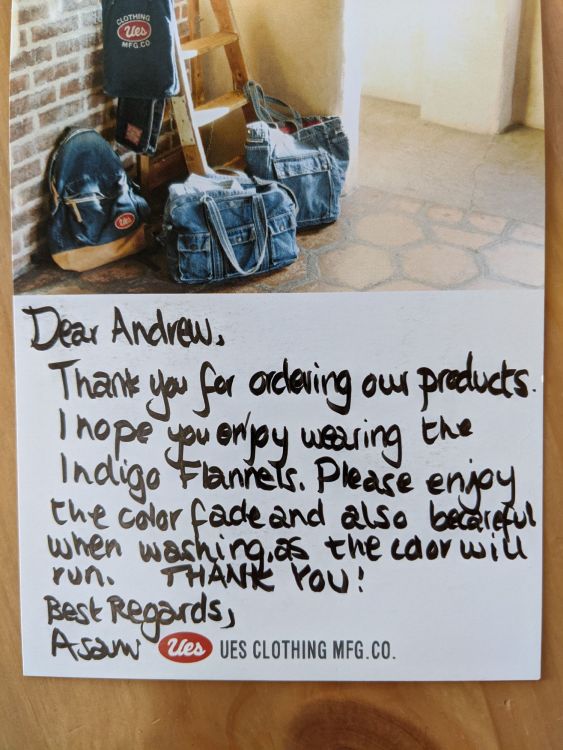 CLOTHING
Ues
MFG.CO
Ues
Dear Andrew,
Thank you for ordering our products.
I hope you enjoy wearing the
Indigo Flannels. Please enjoy
the color fade and also be careful
when washing, as the color will
run. THANK YOU!
Best Regards,
Asam Ues UES CLOTHING MFG.CO.